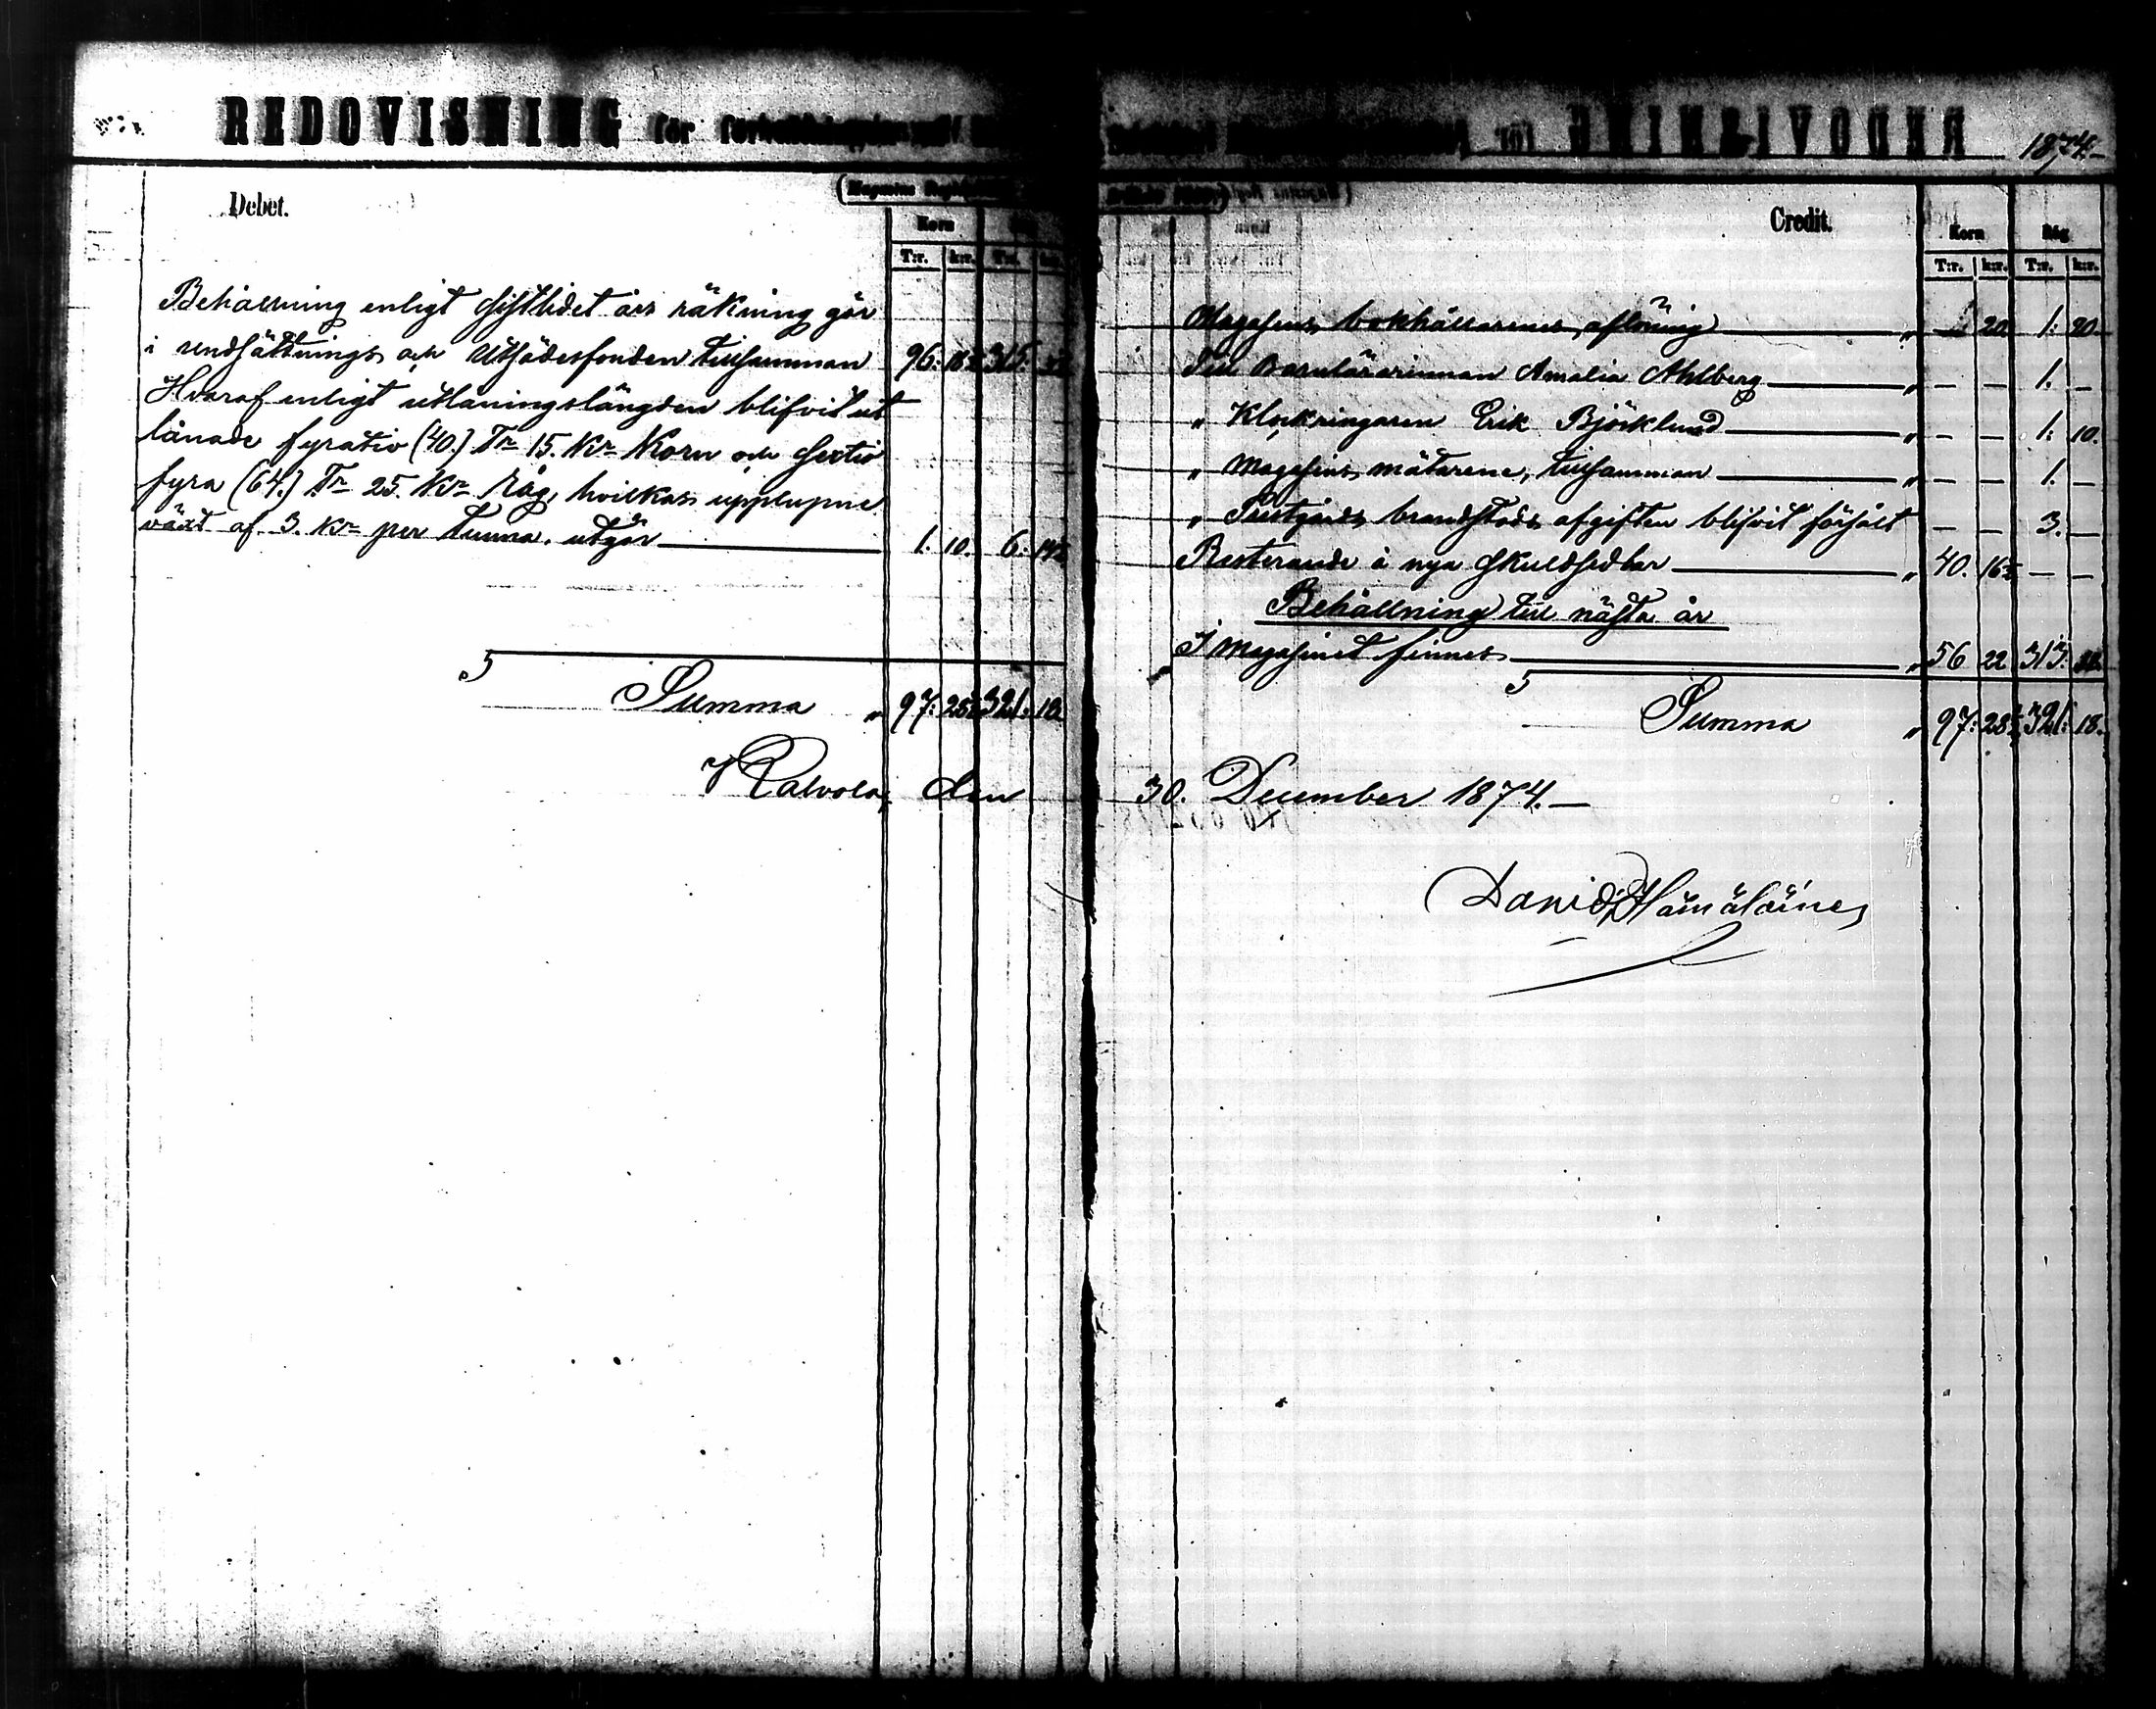 REDOVISNING för
Debet.
Korn
T:r. k:r. T:r.
Behållning enligt sistlidet års räkning gör
i undsättnings och Utsädesfonden tillsamman 96: 18½ 315:
Hvaraf enligt utlåningslängden blifvit ut
lånade fyratio (40.) Tr 15. Kr Korn och sextio
fyra (64.) Tr 25. Kr Råg, hvilkas upplupne
växt af 3. Kr per tunna. utgör 1. 10. 6. 14½
Summa „ 97: 28½ 321: 18
Kalvola, den
1874.
Credit.
Korn Råg
T:r. k:r. T:r. k:r.
Magasins bokhållarenes aflöning „ — 20 1: 20.
Till Barnlärarinnan Amalia Ahlberg „ — — 1. —
„ Klockringaren Erik Björklund „ — — 1: 10.
„ Magasins mätarene, tillsamman „ — — 1. —
„ Prestgårds brandstods afgiften blifvit försålt — — 3. —
Resterande i nya skuldsedlar „ 40. 16½ — —
Behållning till nästa år
I Magasinet finnes „ 56 22 313:
Summa „ 97: 28½ 321: 18.
30. December 1874. —
David Hämäläinen